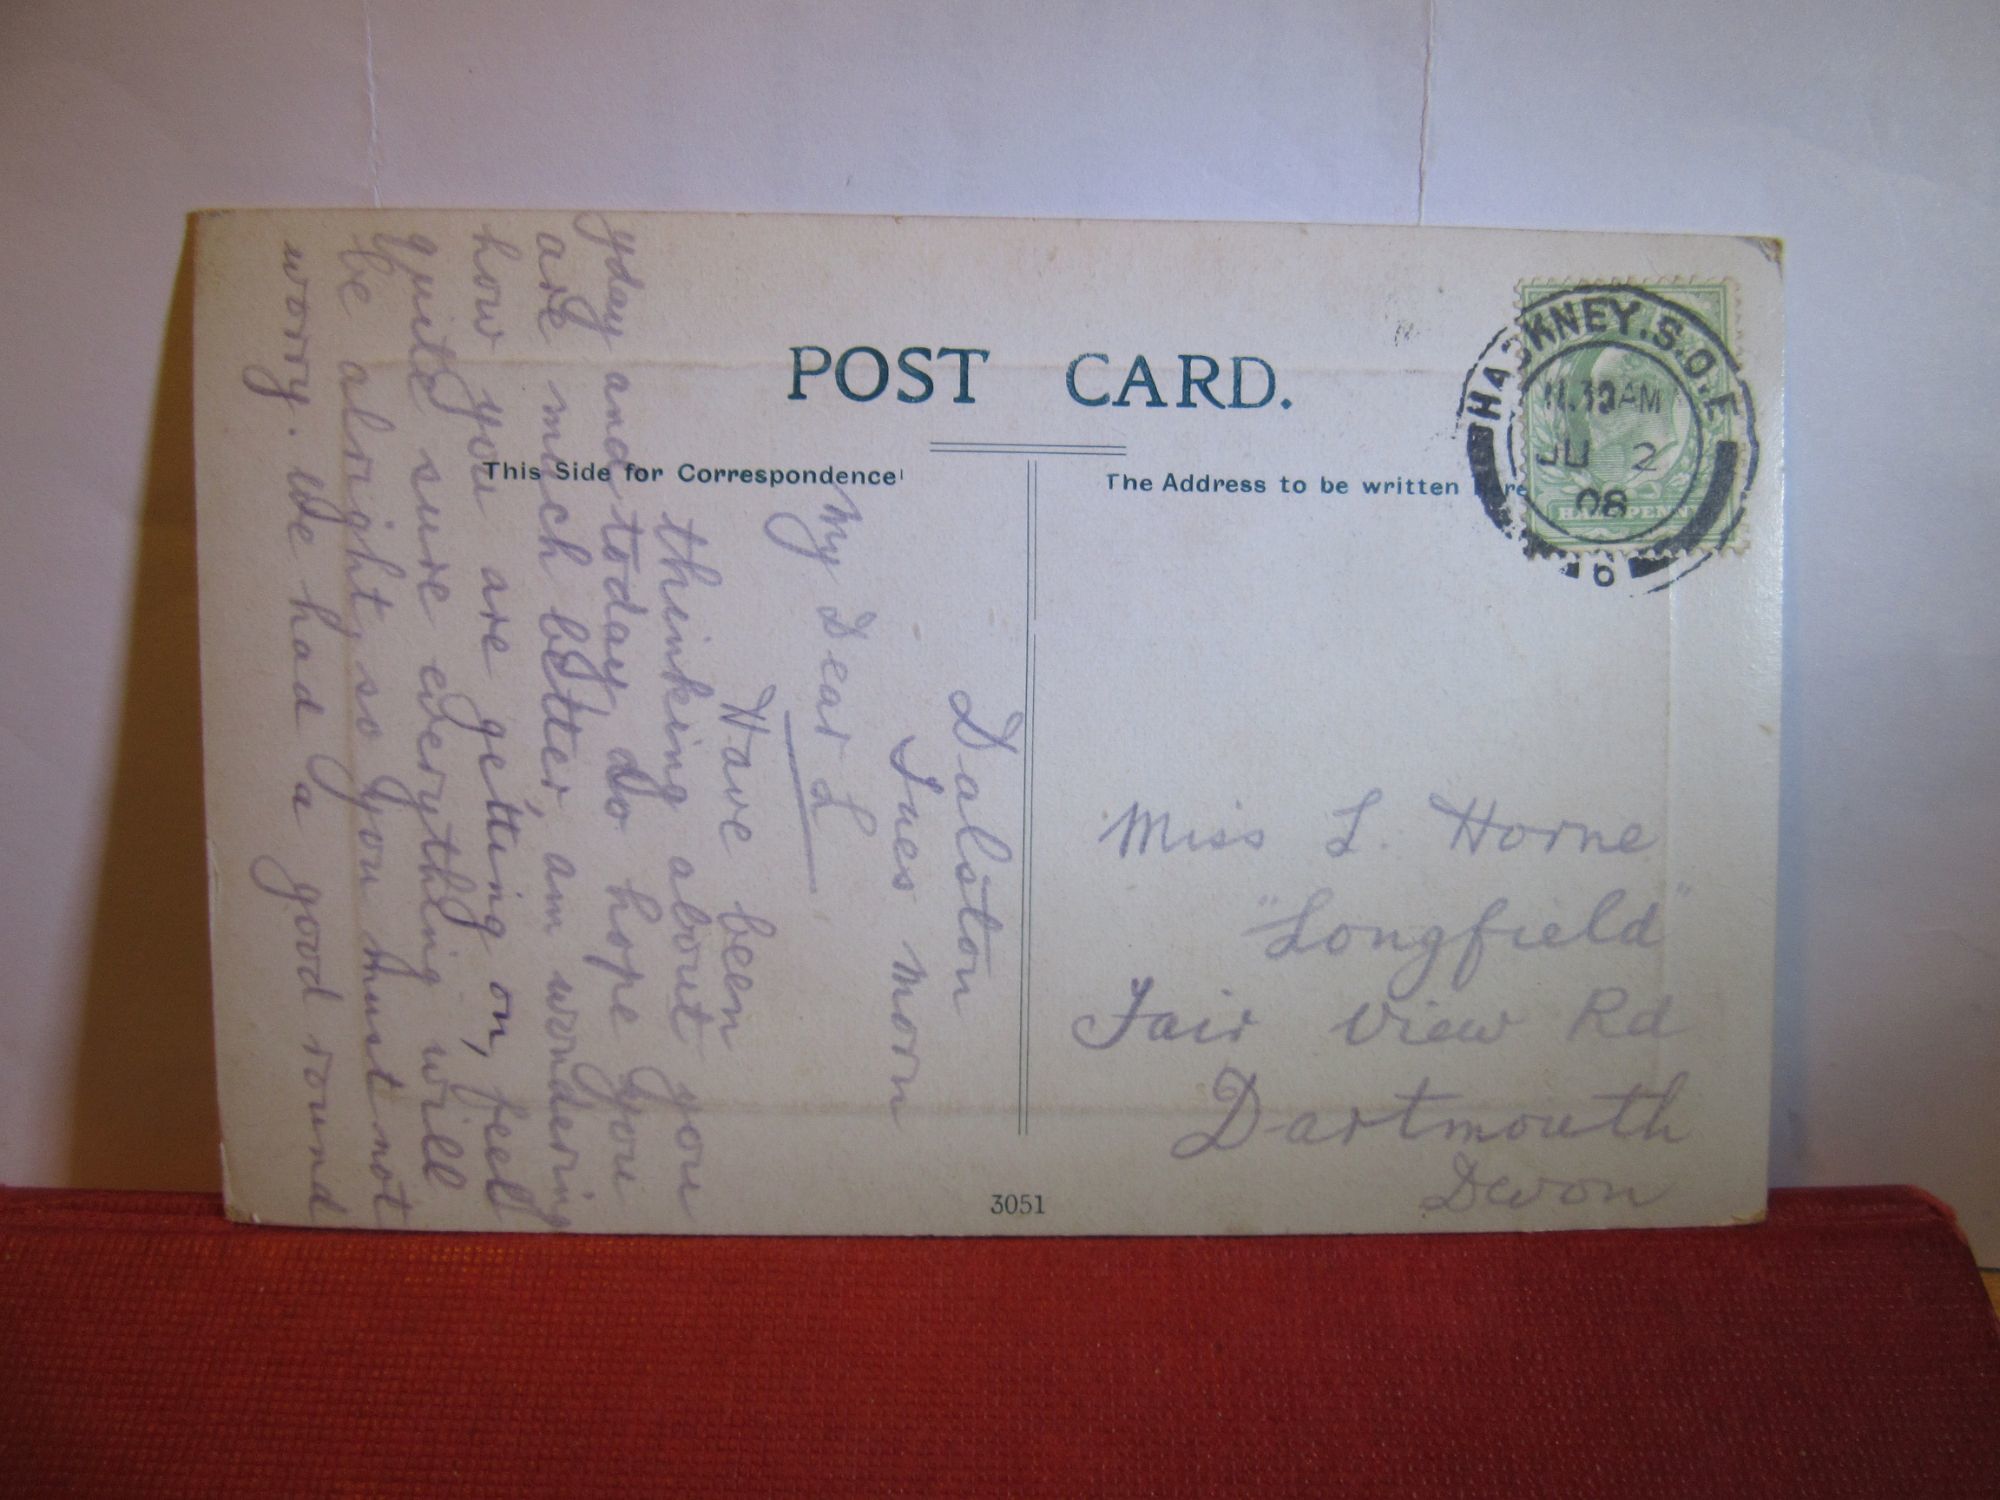 POST CARD.
This Side for Correspondence
The Address to be written here
HACKNEY.S.O.E
11.30AM
JU 2
08
6
HALFPENNY
Miss L. Horne
"Longfield"
Fair View Rd
Dartmouth
Devon
Dalston
Tues morn
My Dear L
Have been
thinking about you
yday and today, do hope you
are much better, am wondering
how you are getting on, feel
quite sure everything will
be alright, so you must not
worry. We had a good round
3051